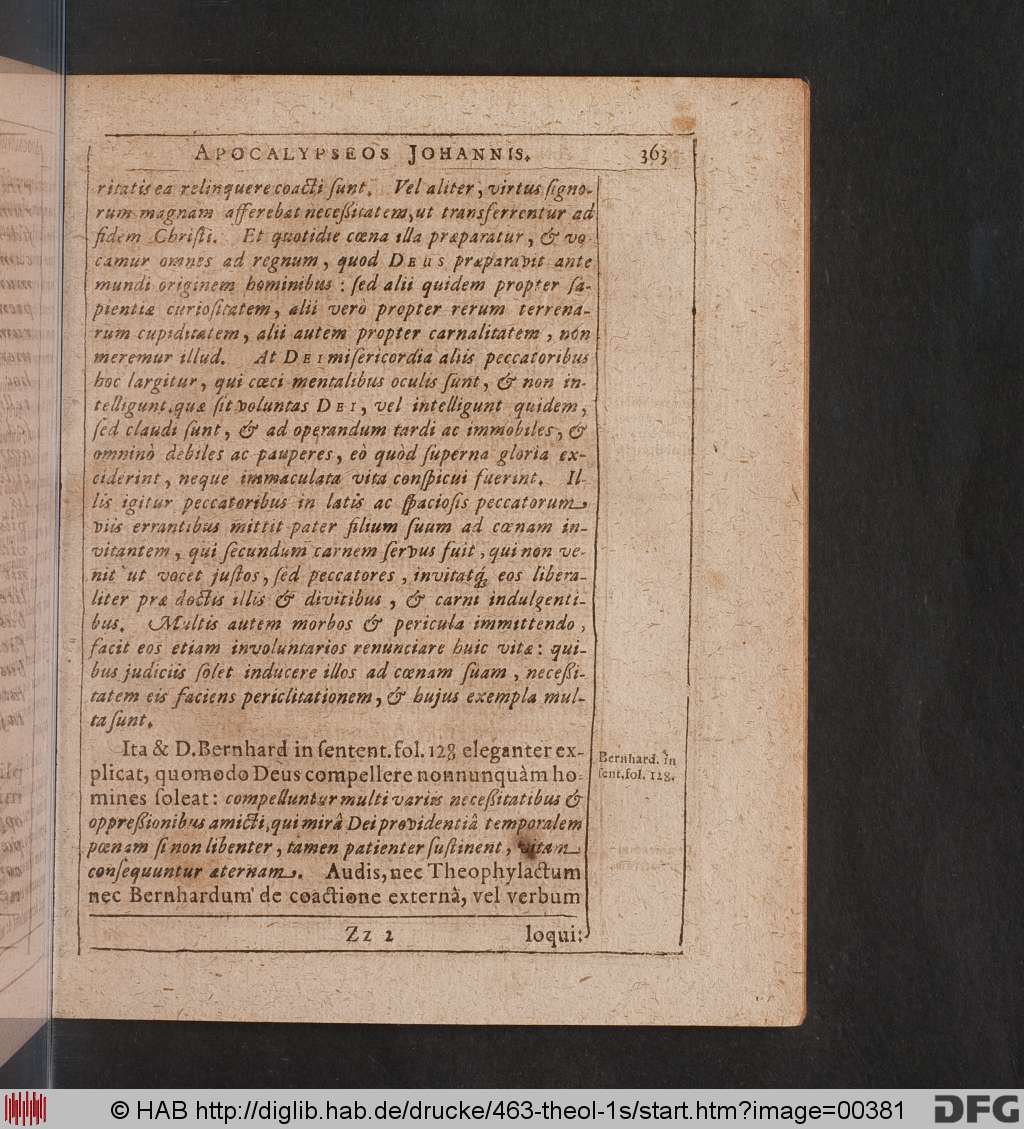 APOCALYPSEOS JOHANNIS. 363
ritatis ea relinquere coacti ſunt. Vel aliter, virtus ſigno-
rum magnam afferebat neceßitatem, ut transferrentur ad
fidem Chriſti. Et quotidie cœna illa præparatur, & vo-
camur omnes ad regnum, quod DEUS præparavit ante
mundi originem hominibus : ſed alii quidem propter ſa-
pientiæ curioſitatem, alii verò propter rerum terrena-
rum cupiditatem, alii autem propter carnalitatem, non
meremur illud. At DEI miſericordia aliis peccatoribus
hoc largitur, qui cœci mentalibus oculis ſunt, & non in-
telligunt, quæ ſit voluntas DEI, vel intelligunt quidem,
ſed claudi ſunt, & ad operandum tardi ac immobiles, &
omninò debiles ac pauperes, eò quòd ſuperna gloria ex-
ciderint, neque immaculata vita conſpicui fuerint. Il-
lis igitur peccatoribus in latis ac ſpacioſis peccatorum
viis errantibus mittit pater filium ſuum ad cœnam in-
vitantem, qui ſecundum carnem ſervus fuit, qui non ve-
nit ut vocet juſtos, ſed peccatores, invitatq́; eos libera-
liter præ doctis illis & divitibus, & carni indulgenti-
bus. Multis autem morbos & pericula immittendo,
facit eos etiam involuntarios renunciare huic vitæ: qui-
bus judiciis ſolet inducere illos ad cœnam ſuam, neceßi-
tatem eis faciens periclitationem, & hujus exempla mul-
ta ſunt.
Ita & D. Bernhard in ſentent. fol. 128 eleganter ex-
plicat, quomodo Deus compellere nonnunquàm ho-
mines ſoleat: compelluntur multi variis neceßitatibus &
oppreßionibus amicti, qui mirâ Dei providentiâ temporalem
pœnam ſi non libenter, tamen patienter ſuſtinent, vitam
conſequuntur æternam. Audis, nec Theophylactum
nec Bernhardum de coactione externâ, vel verbum
Bernhard. in
ſent. fol. 128.
Zz 2 loqui:
© HAB http://diglib.hab.de/drucke/463-theol-1s/start.htm?image=00381
DFG